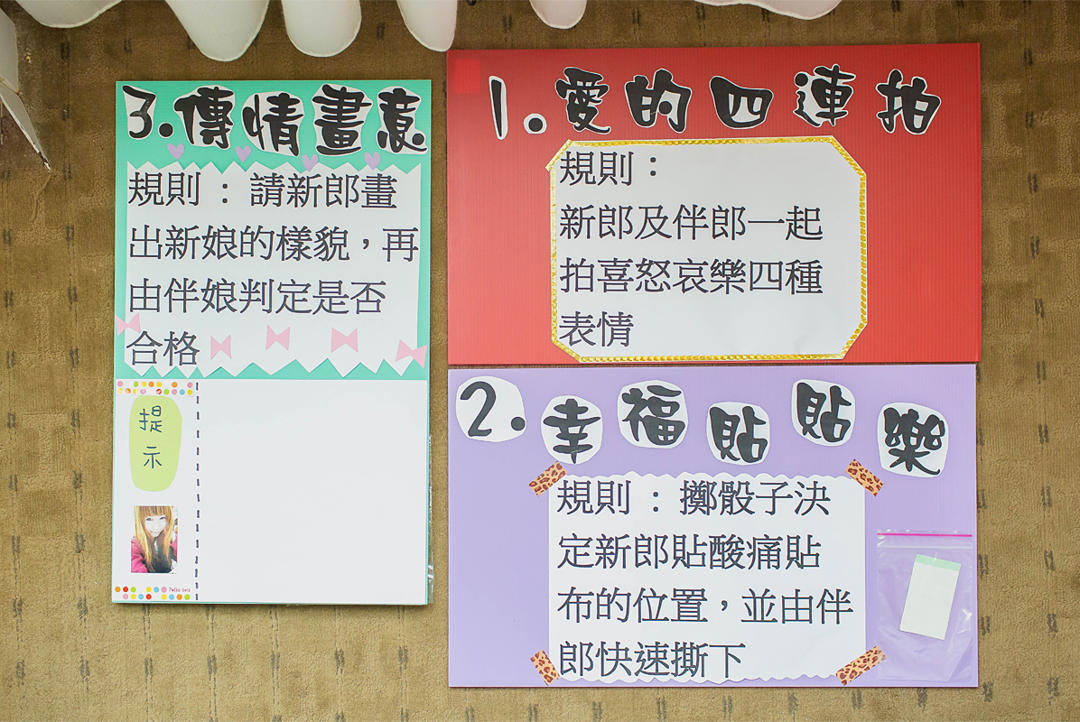 1.愛的四連拍
規則：
新郎及伴郎一起
拍喜怒哀樂四種
表情
2.幸福貼貼樂
規則：擲骰子決
定新郎貼酸痛貼
布的位置，並由伴
郎快速撕下
3.傳情畫意
規則：請新郎畫
出新娘的樣貌，再
由伴娘判定是否
合格
提
示